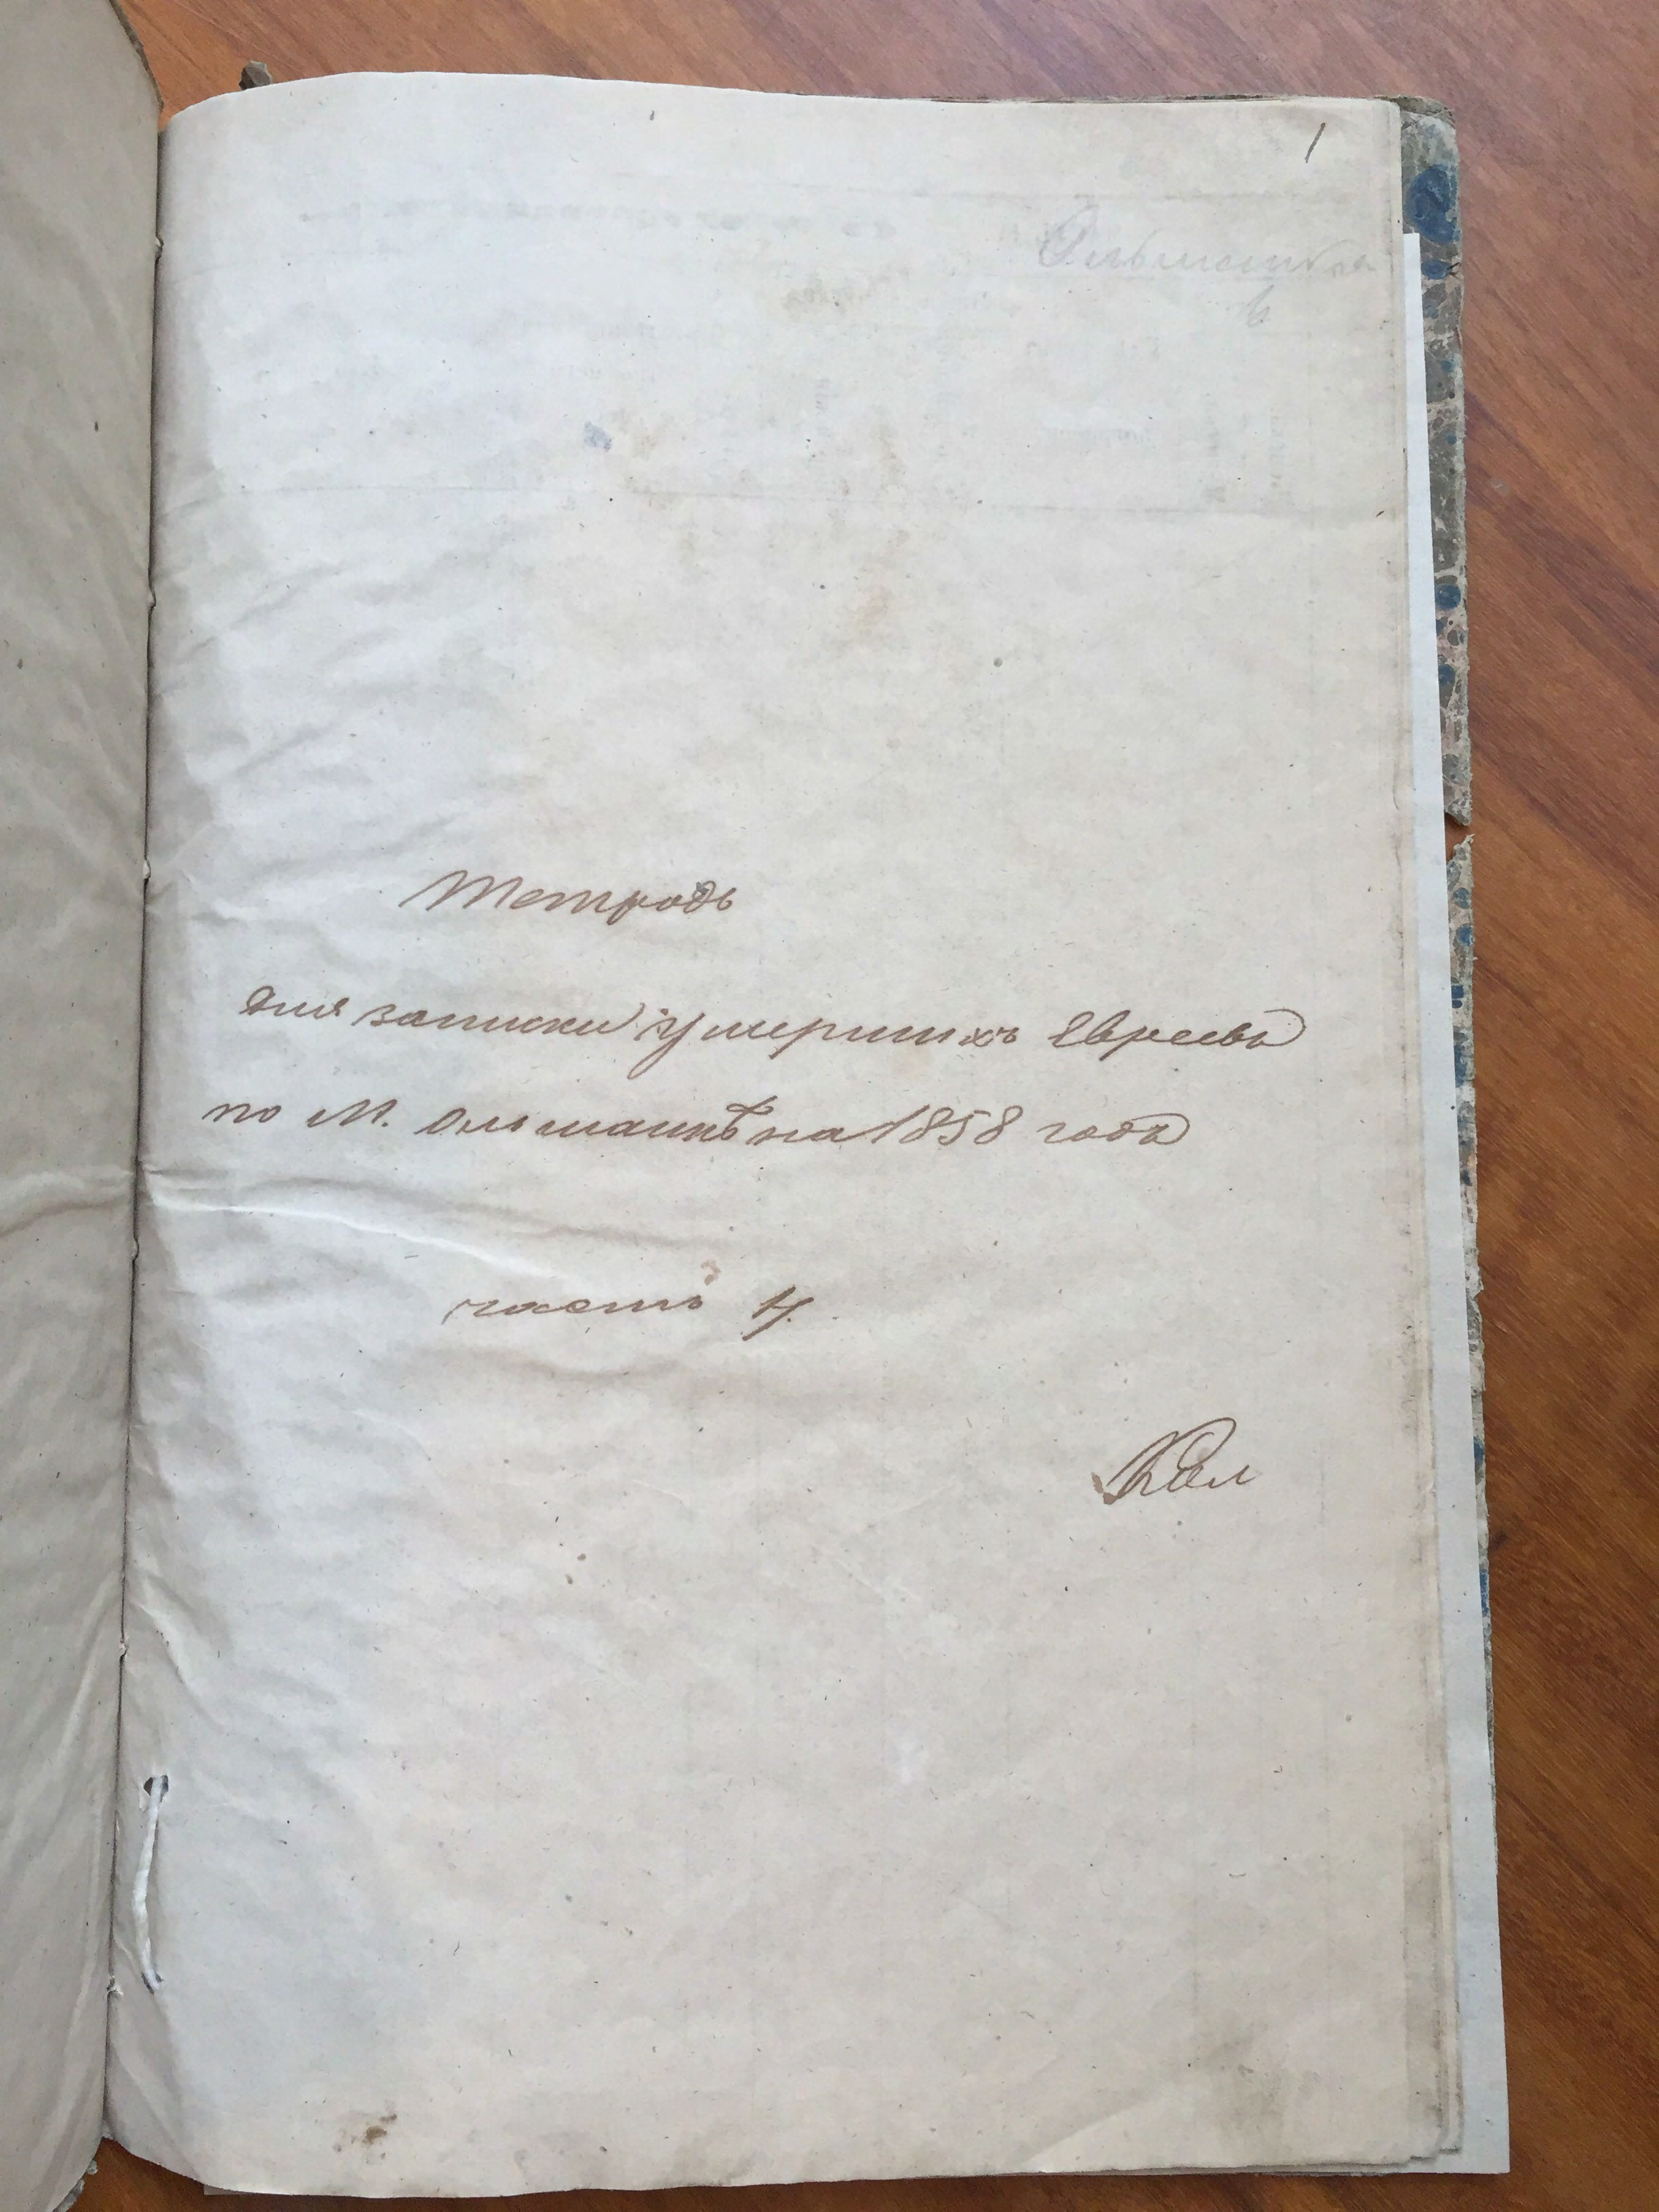 1
Ольшанка
Тетрадь
для записки умершихъ Евреевъ
по М. Ольшанкѣ на 1858 года
часть 4.